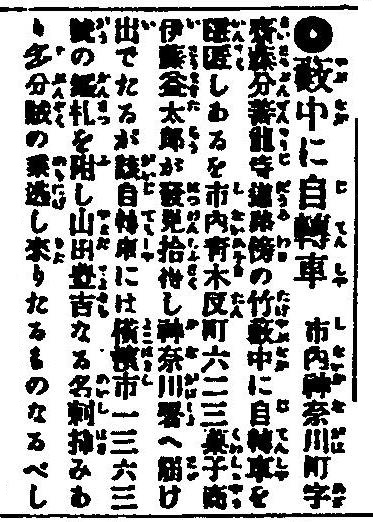 ◉藪中に自轉車 市內神奈川町字
齋藤分善龍寺道路傍の竹藪中に自轉車を
隱匿しあるを市內青木反町六二三菓子商
伊藤益太郎が發見拾得し神奈川署へ屆け
出でたるが該自轉車には橫濱市一三六三
號の鑑札を附し山田豊吉なる名刺挿みあ
り多分賊の乘逃し來りたるものなるべし